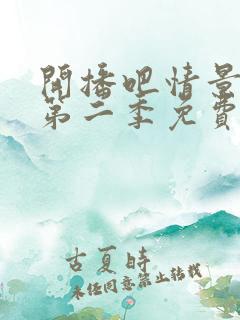 開播吧情景
第二季免費
古夏時
未經同意禁止轉載